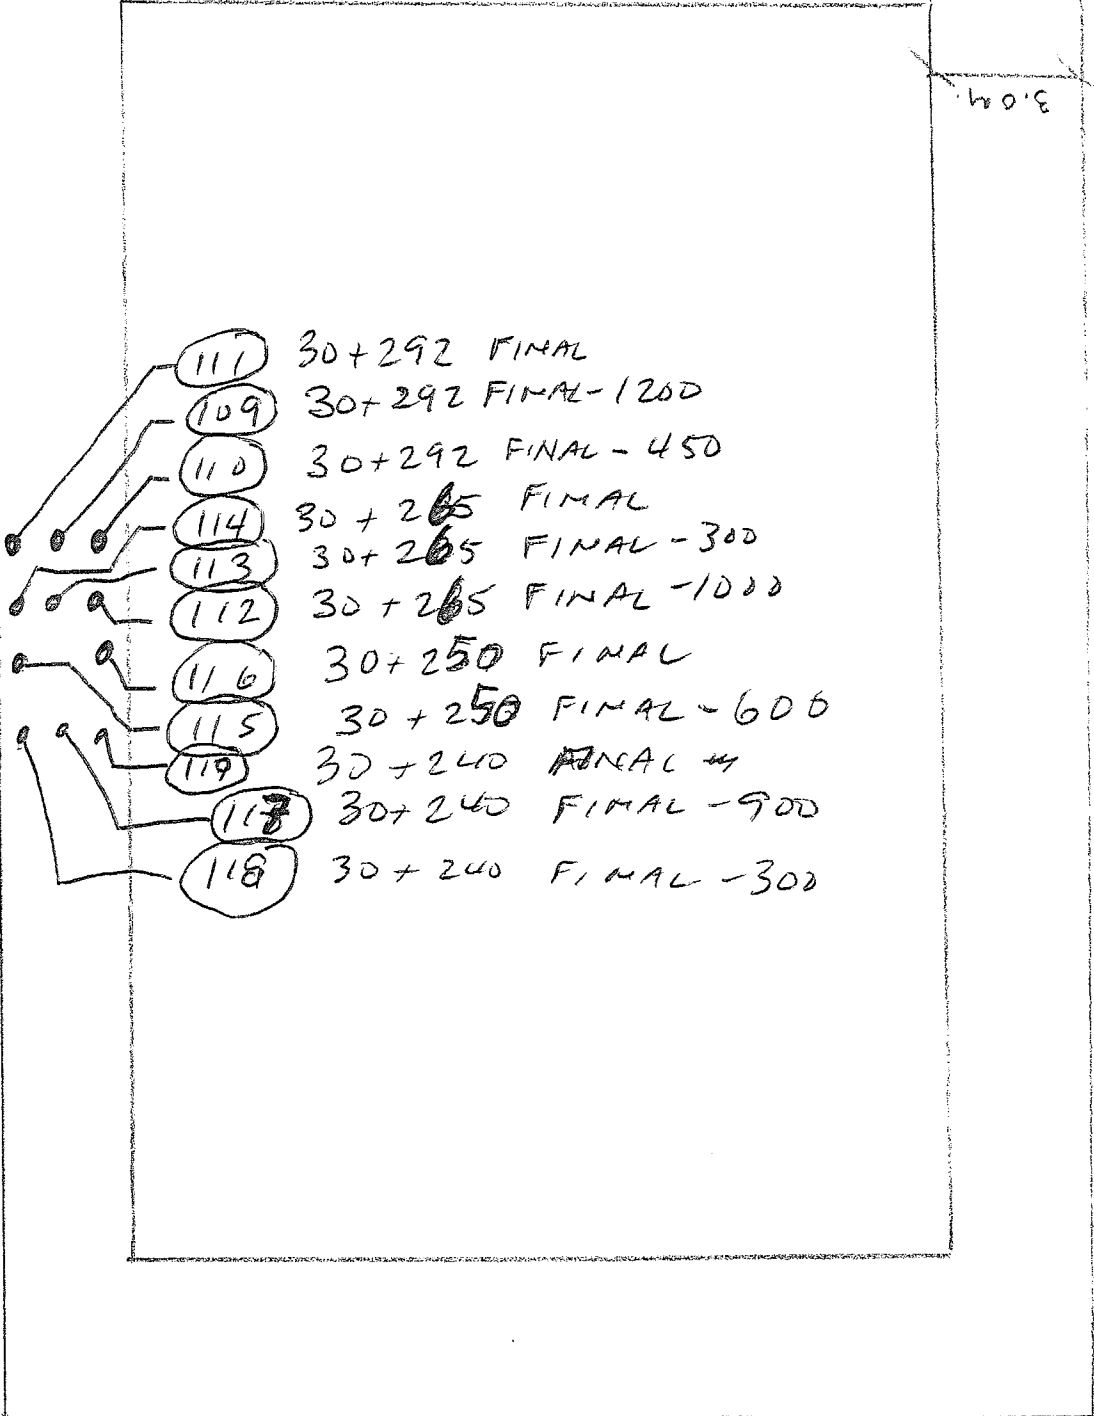 3.0m.
111 30+292 FINAL
109 30+292 FINAL-1200
110 30+292 FINAL-450
114 30+265 FINAL
113 30+265 FINAL-300
112 30+265 FINAL-1000
116 30+250 FINAL
115 30+250 FINAL-600
119 30+240 FINAL
117 30+240 FINAL-900
118 30+240 FINAL-300